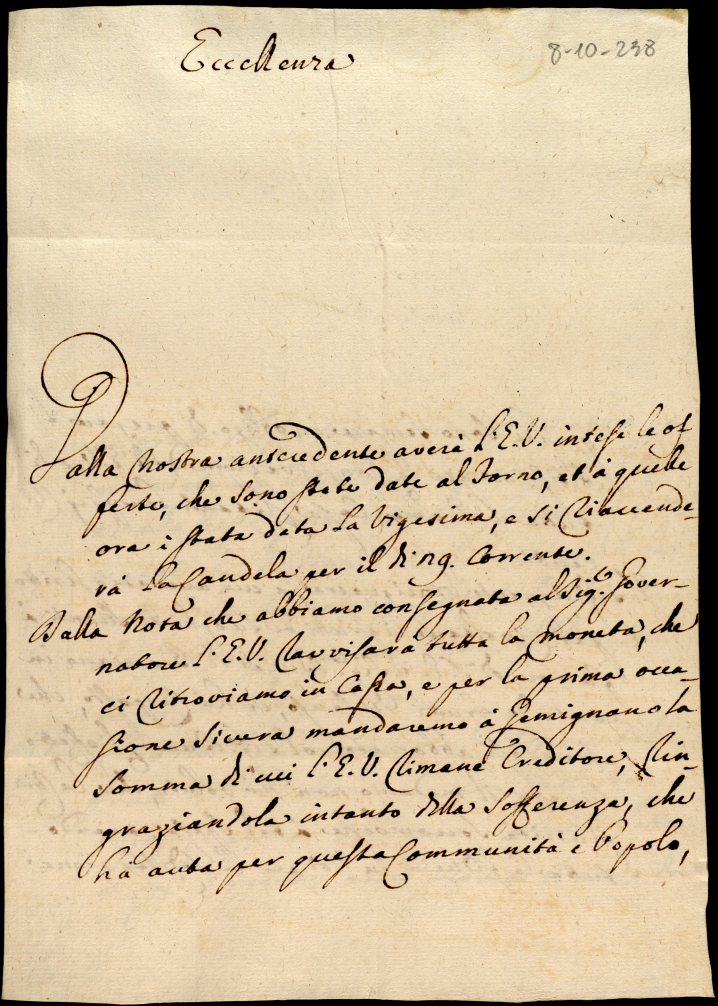 Eccellenza
8-10-238
Dalla nostra antecedente averà l'E.V. intese le of
ferte, che sono state date al Forno, et à quelle
ora è stata data la Vigesima, e si riaccende-
rà la Candela per il dì 29. Corrente.
Dalla Nota che abbiamo consegnata al Sig.re Gover-
natore l'E.V. ravvisarà tutta la moneta, che
ci ritroviamo in Cassa, e per la prima occa-
sione sicura mandaremo à Gemignano la
somma di cui l'E.V. rimane Creditore, rin-
graziandola intanto della sofferenza, che
hà auta per questa Communità e Popolo,